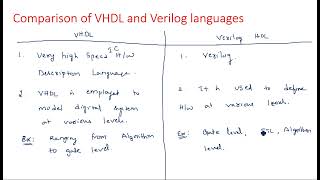 Comparison of VHDL and Verilog languages
VHDL
Verilog HDL
1. Very high Speed IC H/W
Description Language.
1. Verilog.
2 VHDL is employed to
model digital system
at various levels.
2. It is used to define
H/W at various levels.
Ex: Ranging from Algorithm
to gate level
Ex: Gate level, RTL, Algorithm
level.